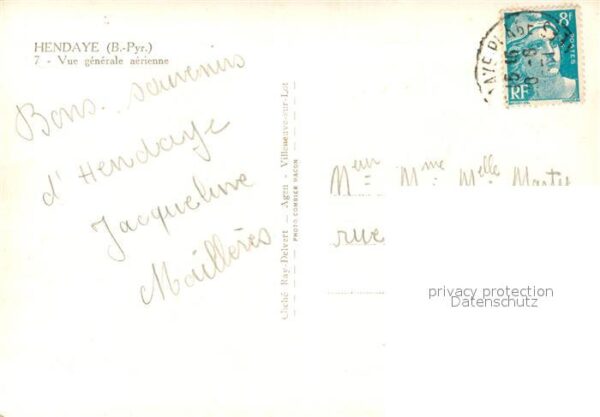 HENDAYE (B.-Pyr.)
7 - Vue générale aérienne
Bons souvenirs
d'Hendaye
Jacqueline
Maillères
Cliché Ray-Delvert — Agen - Villeneuve-sur-Lot
PHOTO COMBIER MACON
8F
POSTES
RF
Meur Mme Melle
rue
privacy protection
Datenschutz